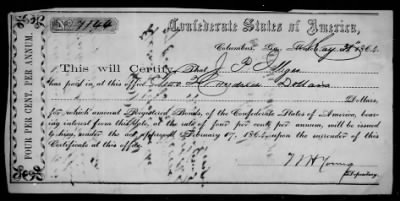 FOUR PER CENT. PER ANNUM.
No. 7144
Confederate States of America,
Columbus, Ga. May 1864.
This will Certify, That J. P. Illges
has paid in at this office Two Hundred Dollars
Dollars,
for which amount Registered Bonds, of the Confederate States of America, bearing
interest from this date, at the rate of four per cent. per annum, will be issued
to him, under the act approved February 17, 1864, upon the surrender of this
Certificate at this office.
W H Young
Depositary.